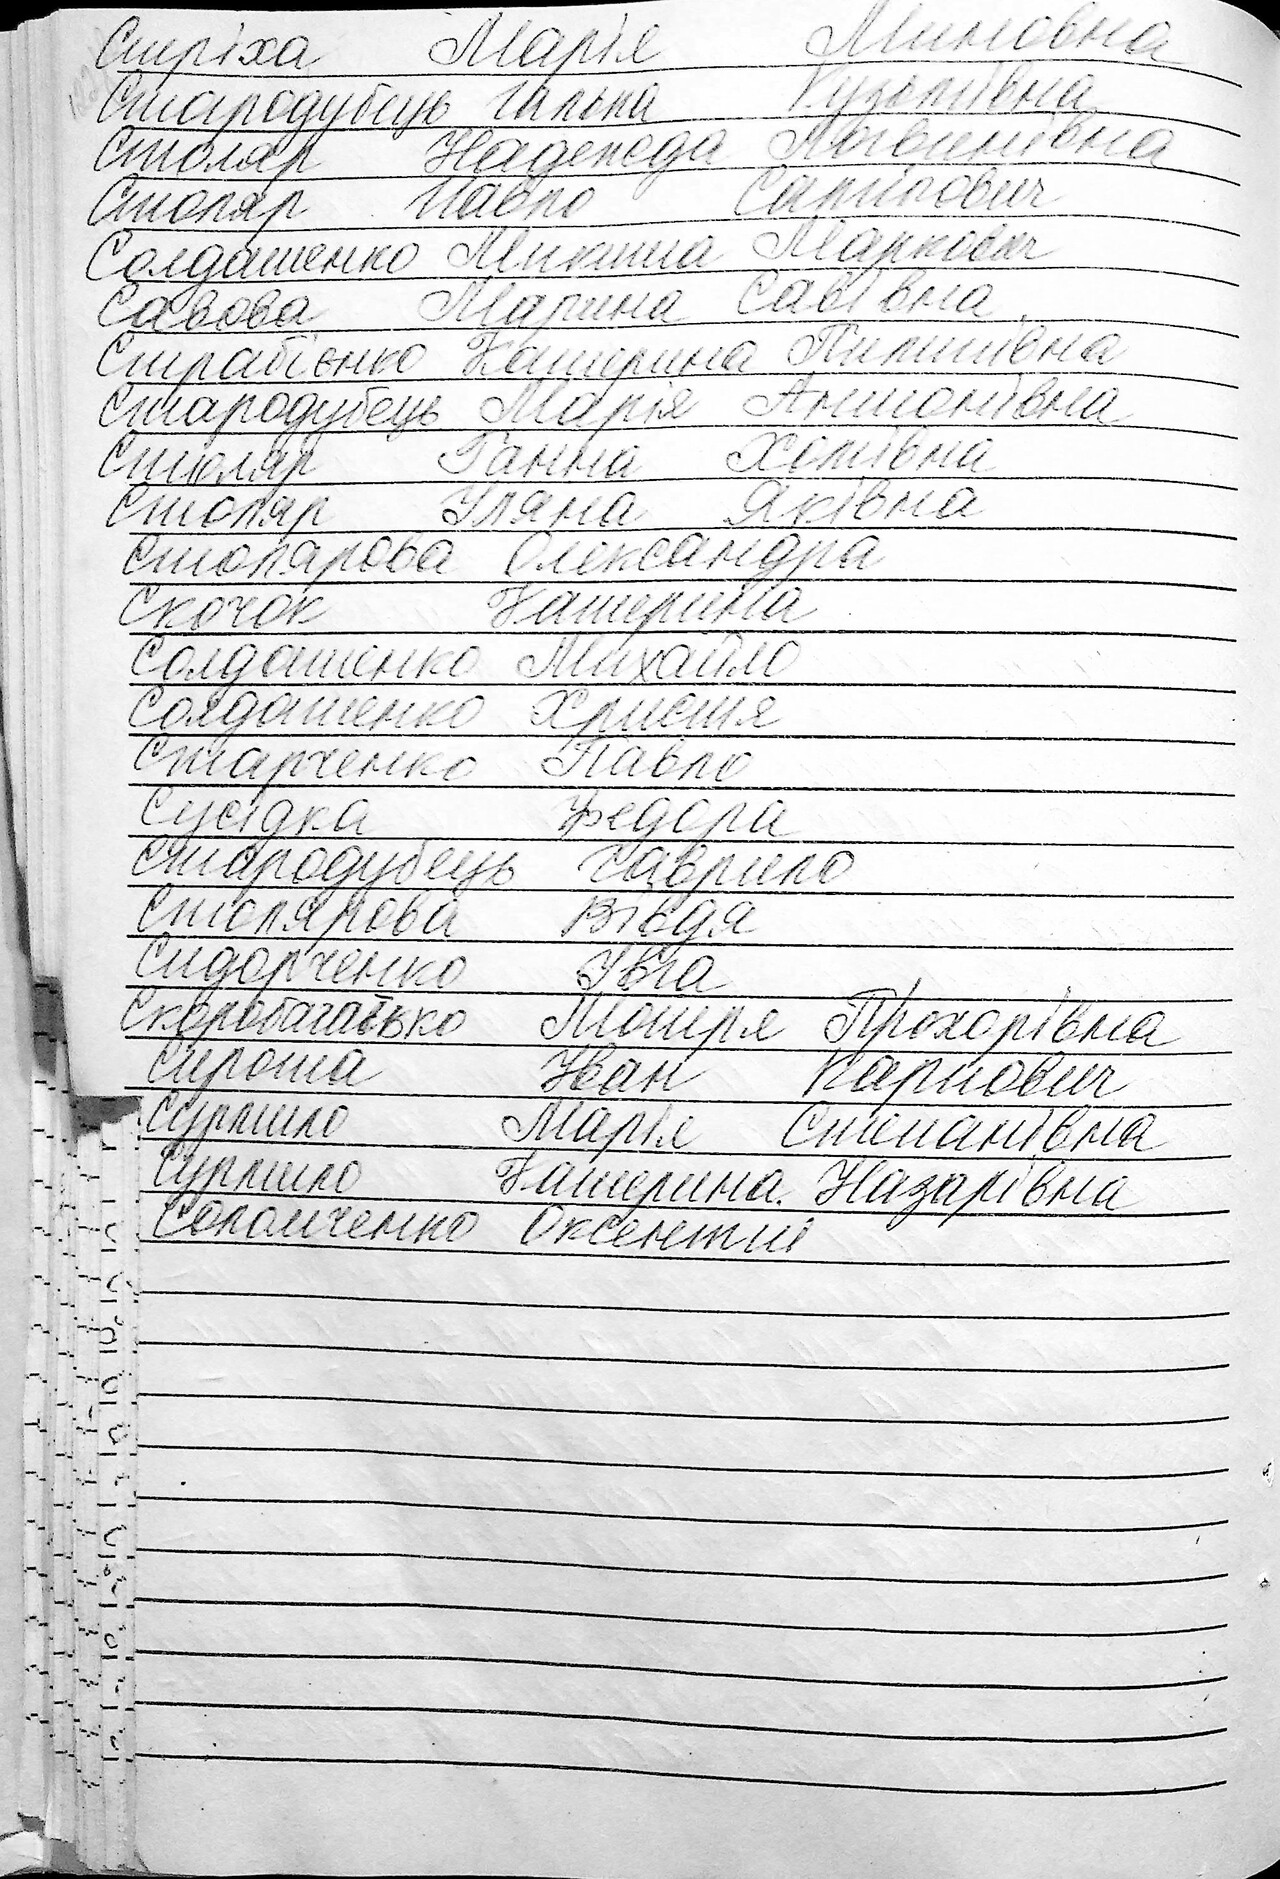 Стріха Марія Миновна
Стародубець Галька Кузьмівна
Столяр Надежда Логвинівна
Столяр Павло Самійлович
Солдатенко Микита Маркович
Савова Марина Савівна
Страбієнко Катерина Пилипівна
Стародубець Марія Антонівна
Столяр Ганна Хомівна
Столяр Уляна Яківна
Столярова Олександра
Скочок Катерина
Солдатенко Михайло
Солдатенко Христя
Старченко Павло
Сусідка Федора
Стародубець Гаврило
Столярова Вівдя
Сидорченко Ївга
Скоробагатько Мотря Прохорівна
Сирота Іван Карпович
Сурмило Марія Степанівна
Сурмило Катерина. Назарівна
Соломченко Оксентій